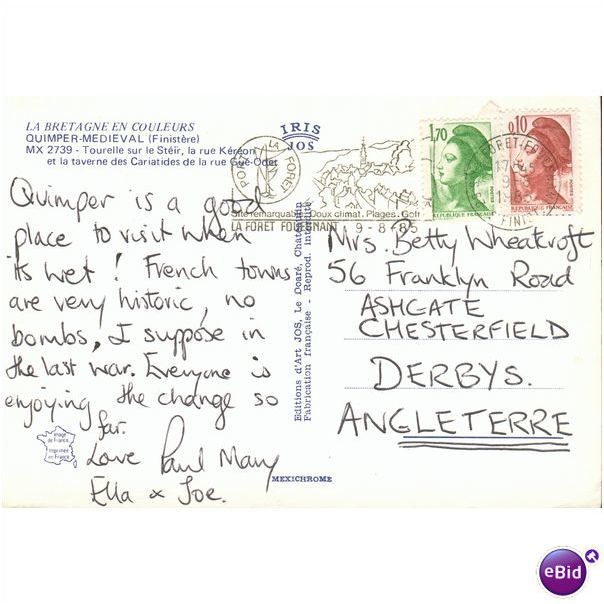 LA BRETAGNE EN COULEURS
QUIMPER-MEDIEVAL (Finistère)
MX 2739 - Tourelle sur le Stéir, la rue Kéréon
et la taverne des Cariatides de la rue Gué-Odet
IRIS
JOS
PORT
LA FORET
Site remarquable. Doux climat. Plages. Golf
LA FORET FOUESNANT
9-8-85
1,70
REPUBLIQUE FRANÇAISE
0,10
REPUBLIQUE FRANÇAISE
Quimper is a good
place to visit when
its wet! French towns
are very historic, no
bombs, I suppose in
the last war. Everyone is
enjoying the change so
far.
Love Paul Mary
Ella & Joe.
Image
de France
Imprimée
en France
Editions d'Art JOS, Le Doaré, Chateaulin
Fabrication française - Reprod. interdite
MEXICHROME
Mrs. Betty Wheatcroft
56 Franklyn Road
ASHGATE
CHESTERFIELD
DERBYS.
ANGLETERRE
eBid